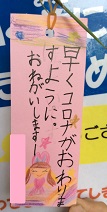 早くコロナがおわりま
すように。
おねがいします
ござ